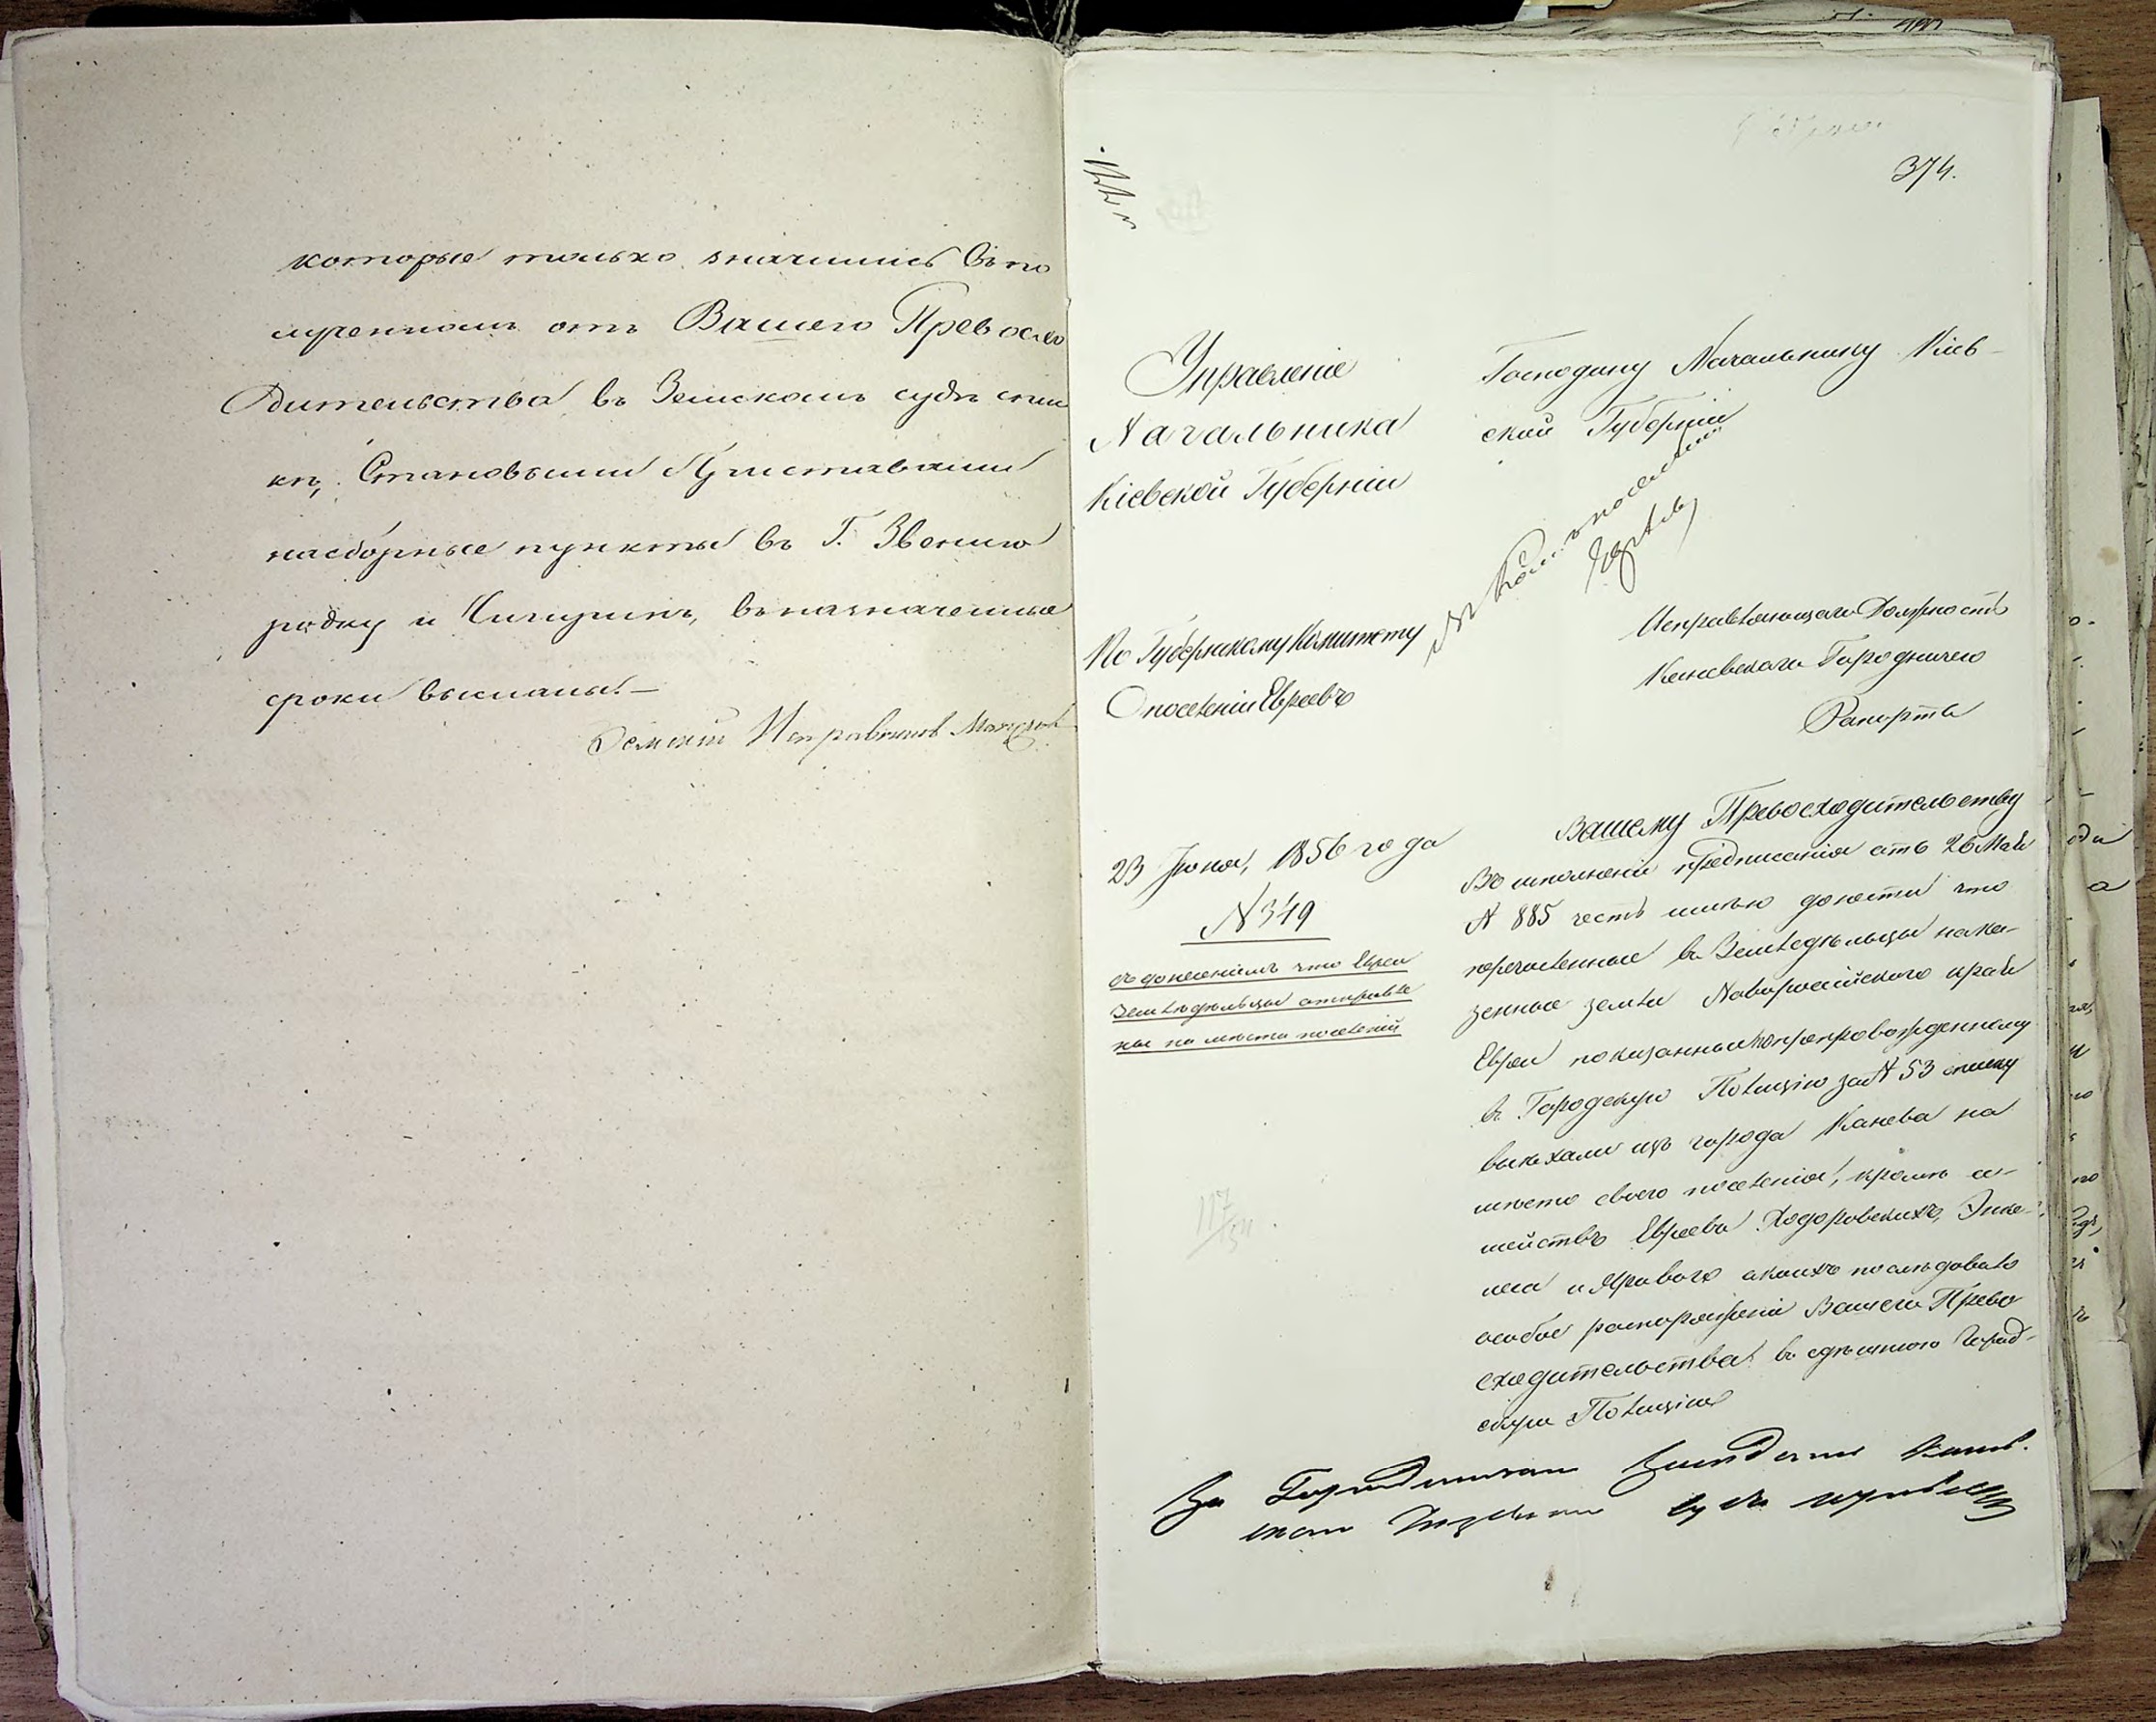 которые только значились въ по
лученномъ отъ Вашего Превосхо
дительства въ Земскомъ судѣ спис
кѣ, Становыми Приставами
насборные пункты въ Г. Звениго
родку и Чигиринъ, въ назначенные
сроки высланы.—
Земский Исправникъ
374.
Управленіе
Начальника
Кіевской Губерніи
По Губернскому Комитету
О поселеніи Евреевъ
23 Іюня, 1856 года
№ 349
съ донесеніемъ что Евреи
земледѣльцы отправле
ны на мѣста поселеній
Господину Начальнику Кіев-
ской Губерніи
Исправляющаго Должность
Каневскаго Городничего
Рапортъ
Вашему Превосходительству
Во исполненіе предписанія отъ 26 Мая
№ 885 честь имѣю донести что
перечисленные въ Земледѣльцы на ка-
зенные земли Новороссійскаго края
Евреи показанные по препровожденному
въ Городскую Полицію за № 53 списку
выѣхали изъ города Канева на
мѣсто своего поселенія, кромѣ се-
мействъ Евреевъ Ходоровскихъ,
и Ярового о коихъ послѣдовало
особое распоряженіе Вашего Прево
сходительства въ здѣшнюю Город-
скую Полицію
За Городничаго